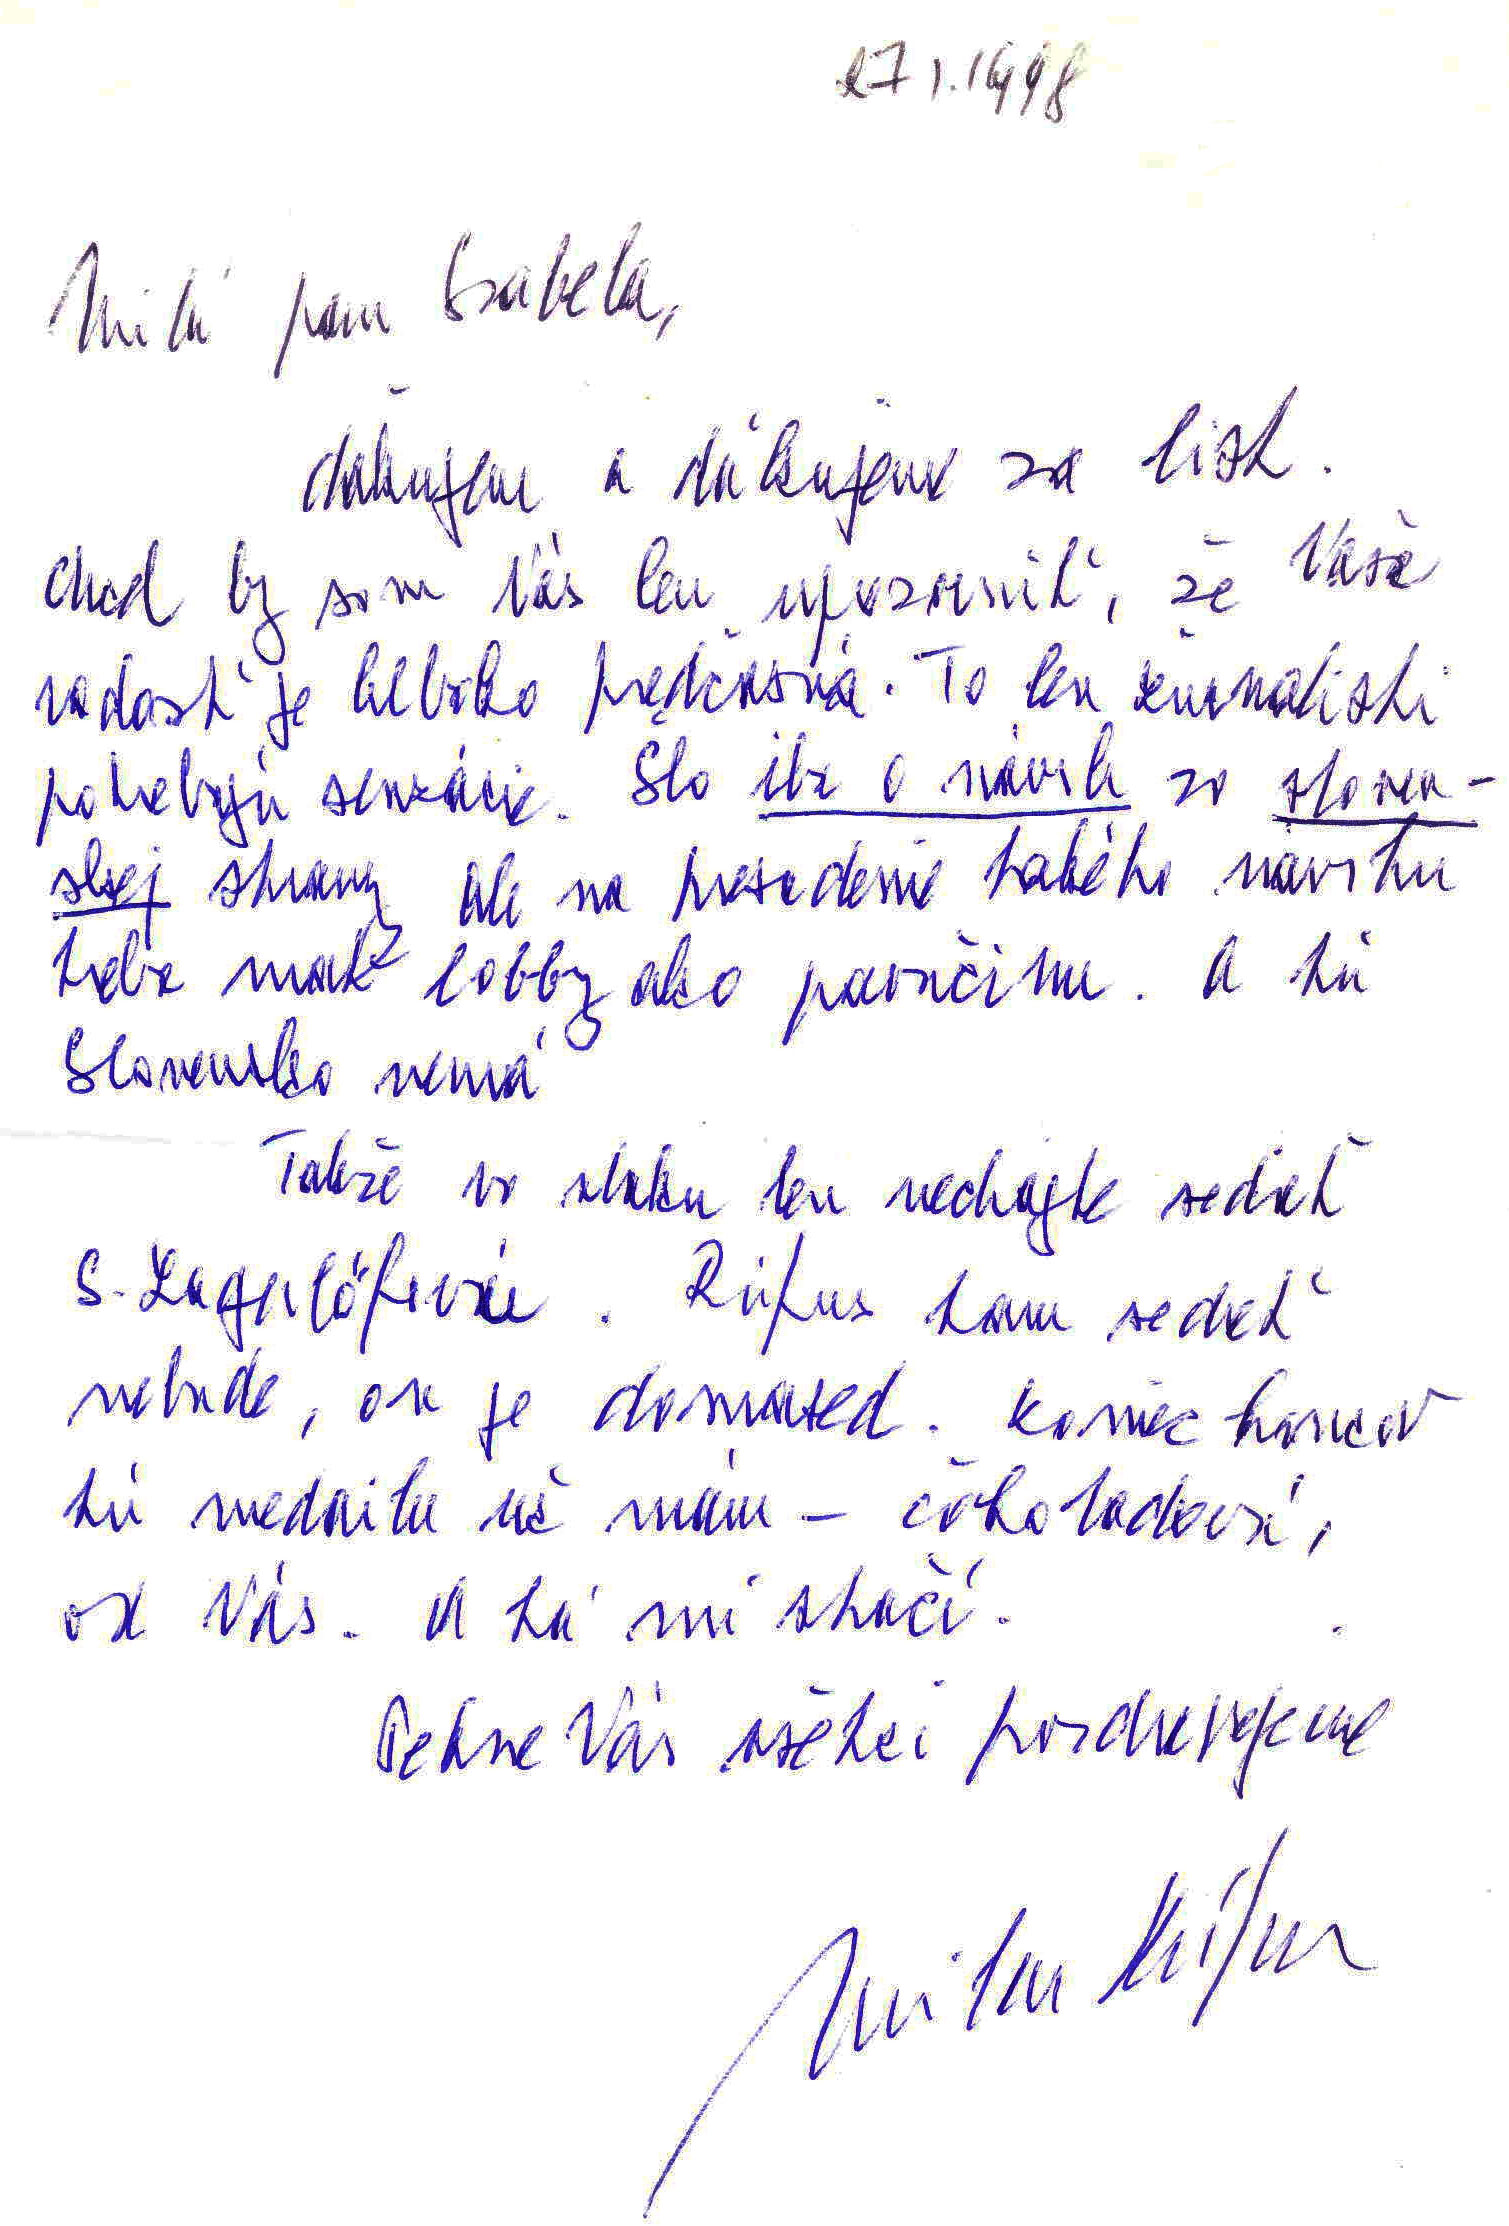 27 1. 1998
Milá pani Izabela,
ďakujem a ďakujeme za list.
Chcel by som Vás len upozorniť, že Vaša
radosť je hlboko predčasná. To len žurnalisti
potrebujú senzácie. Šlo iba o návrh zo sloven-
skej strany ale na presadenie takého návrhu
treba mať lobby ako pavučinu. A tú
Slovensko nemá
Takže vo vlaku len nechajte sedieť
S. Lagerlöfovú. Rúfus tam sedieť
nebude, on je domased. Koniec koncov
tú medailu už mám – čokoládovú,
od Vás. A tá mi stačí.
Pekne Vás všetci pozdravujeme
Milan Rúfus